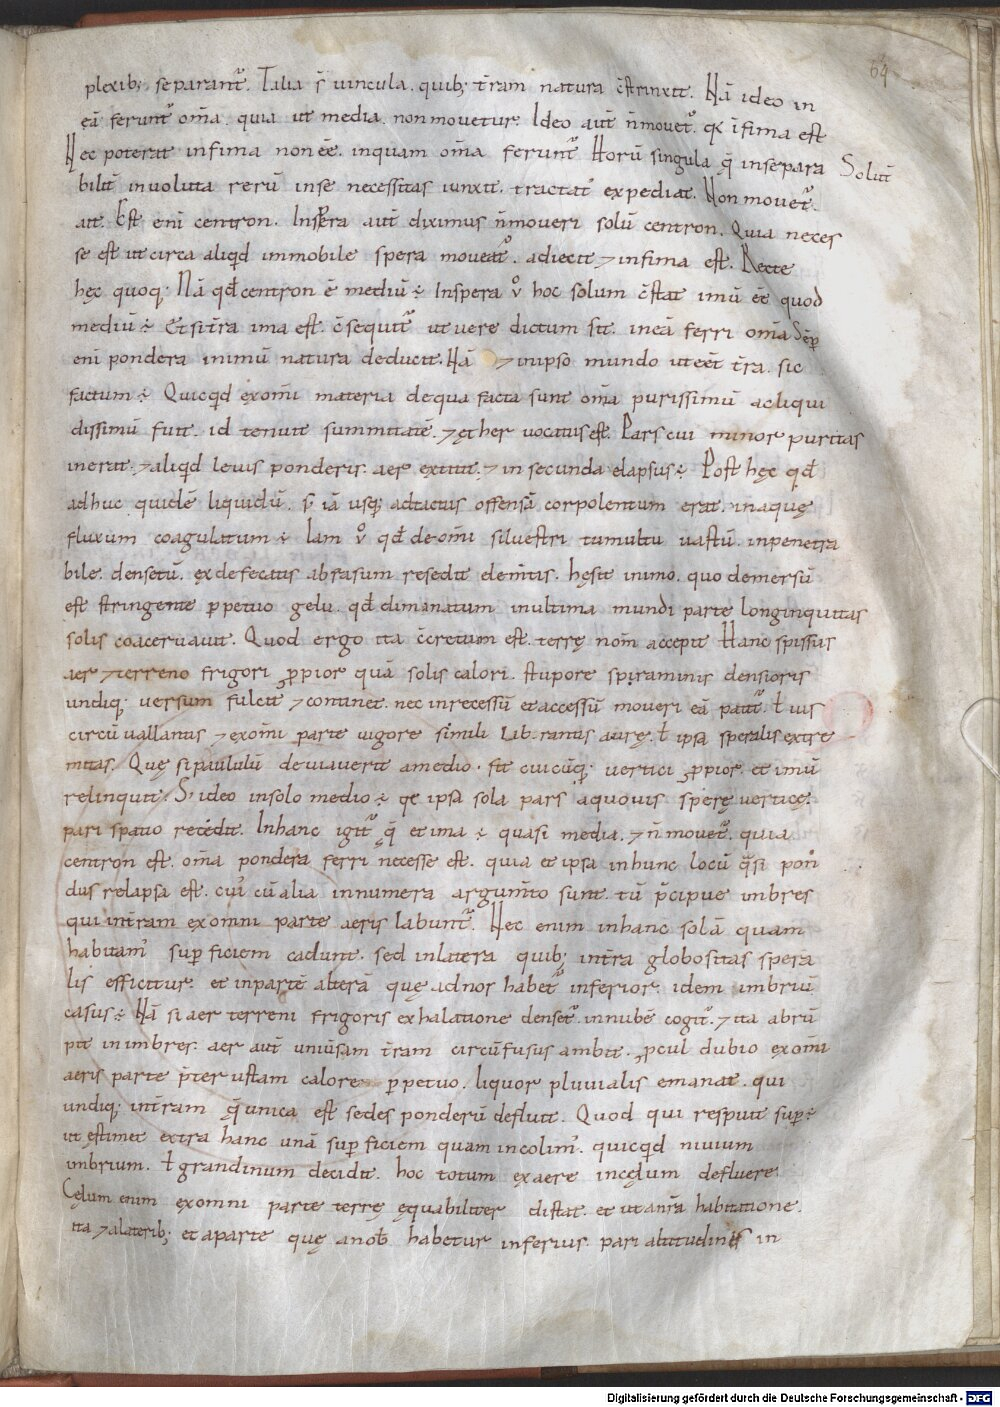 64
plexib; separant᷑. Talia s̄ uincula. quib; t̄ram natura c̄strinxit. Nā ideo in
eā ferunt᷑ om̄a. quia ut media. non mouetur. Ideo aut̄ n̄ mouet᷑. q̄a infima est
Nec poterat infima non eē. inquam om̄a ferunt᷑ Horū singula q̄ insepara Solut
bilit̄ inuoluta rerū inse necessitas iunxit. tractat᷑ expediat. Non mouet᷑.
ait. Est eni centron. Inspera aut̄ diximus n̄ moueri solū centron. Quia neces
se est ut circa aliqd immobile spera moueat᷑. adiecit ⁊ infima est. Recte
hęc quoq;. Nā qd centron ē mediū ÷ Inspera v̊ hoc solum c̄stat imū eē quod
mediū ÷ Et si t̄ra ima est. c̄sequit᷑ ut uere dictum sit. ineā ferri om̄a Sēp
eni pondera inimū natura deducit. Nā ⁊ inipso mundo ut eēt t̄ra. sic
factum ÷ Quicqd exom̄i materia dequa facta sunt om̄a purissimū acliqui
dissimū fuit. id tenuit summitatē. ⁊ ęther uocatus est. Pars cui minor puritas
inerat. ⁊ aliqd leuis ponderis. aer extitit. ⁊ in secunda elapsus ÷ Post hęc qd
adhuc quidē liquidū. s̄ iā usq; adtactus offensā corpolentum erat. inaquę
fluxum coagulatum ÷ Iam v̊ qd deom̄i siluestri tumultu uastū. inpenetra
bile. densetū. exdefecatis abrasum resedit elem̄tis. hęsit inimo. quo demersū
est stringente ppetuo gelu. qd dimanatum inultima mundi parte longinquitas
solis coaceruauit. Quod ergo ita c̄cretum est. terrę nom̄ accepit Hanc spissus
aer ⁊ terreno frigori ppior quā solis calori. stupore spiraminis densioris
undiq; uersum fulcit ⁊ continet. nec inrecessū et accessū moueri eā patit᷑. ł uis
circū uallantis ⁊ exom̄i parte uigore simili librantis aurę. ł ipsa speralis extre
mitas. Quę si paululū deuiauerit amedio. fit cuicūq; uertici ppior. et imū
relinquit. S; ideo insolo medio ÷ qr ipsa sola pars aquouis sperę uertice.
pari spatio recedit. Inhanc igit᷑ q̄ et ima ÷ quasi media. ⁊ n̄ mouet᷑. quia
centron est. om̄a pondera ferri necesse est. quia et ipsa inhunc locū q̄si pon
dus relapsa est. cui᷒ cū alia innumera argum̄to sunt. tū p̄cipue imbres
qui int̄ram exomni parte aeris labunt᷑. Nec enim inhanc solā quam
habitam᷒ supficiem cadunt. sed inlatera quib; int̄ra globositas spera
lis efficitur. et inpartē alterā quę adnos habet᷑ inferior. idem imbriū
casus ÷ Nā si aer terreni frigoris exhalatione denset᷑. innubē cogit᷑. ⁊ ita abrū
pit in imbres. aer aut̄ uniūsam t̄ram circūfusus ambit. pcul dubio exom̄i
aeris parte p̄ter ustam calore ppetuo. liquor pluuialis emanat. qui
undiq; int̄ram q̄ unica est sedes ponderū defluit. Quod qui respuit sup÷
ut ęstimet extra hanc unā supficiem quam incolim᷒. quicqd niuium
imbrium. ł grandinum decidit. hoc totum exaere incęlum defluere.
Cęlum enim exomni parte terrę ęquabiliter distat. et ut anr̄a habitatione.
ita ⁊ alaterib; et aparte quę anob̄ habetur inferius. pari altitudinis in
Digitalisierung gefördert durch die Deutsche Forschungsgemeinschaft - DFG